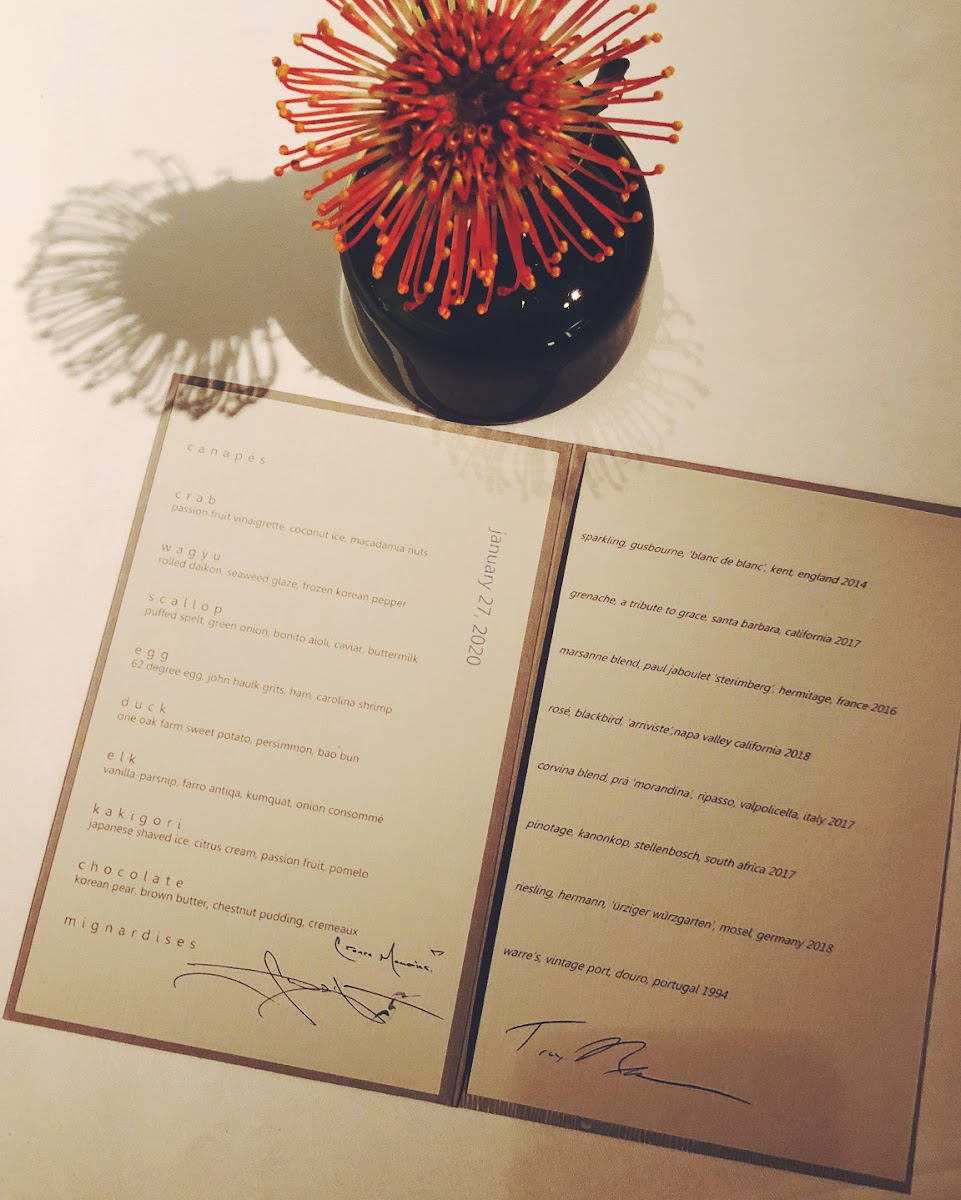 canapés
crab
passion fruit vinaigrette, coconut ice, macadamia nuts
wagyu
rolled daikon, seaweed glaze, frozen korean pepper
scallop
puffed spelt, green onion, bonito aioli, caviar, buttermilk
egg
62 degree egg, john haulk grits, ham, carolina shrimp
duck
one oak farm sweet potato, persimmon, bao bun
elk
vanilla-parsnip, farro antiqa, kumquat, onion consommé
kakigori
japanese shaved ice, citrus cream, passion fruit, pomelo
chocolate
korean pear, brown butter, chestnut pudding, cremeaux
mignardises
january 27, 2020
sparkling, gusbourne, 'blanc de blanc', kent, england 2014
grenache, a tribute to grace, santa barbara, california 2017
marsanne blend, paul jaboulet 'sterimberg', hermitage, france 2016
rosé, blackbird, 'arriviste',napa valley california 2018
corvina blend, prà 'morandina', ripasso, valpolicella, italy 2017
pinotage, kanonkop, stellenbosch, south africa 2017
riesling, hermann, 'ürziger würzgarten', mosel, germany 2018
warre's, vintage port, douro, portugal 1994